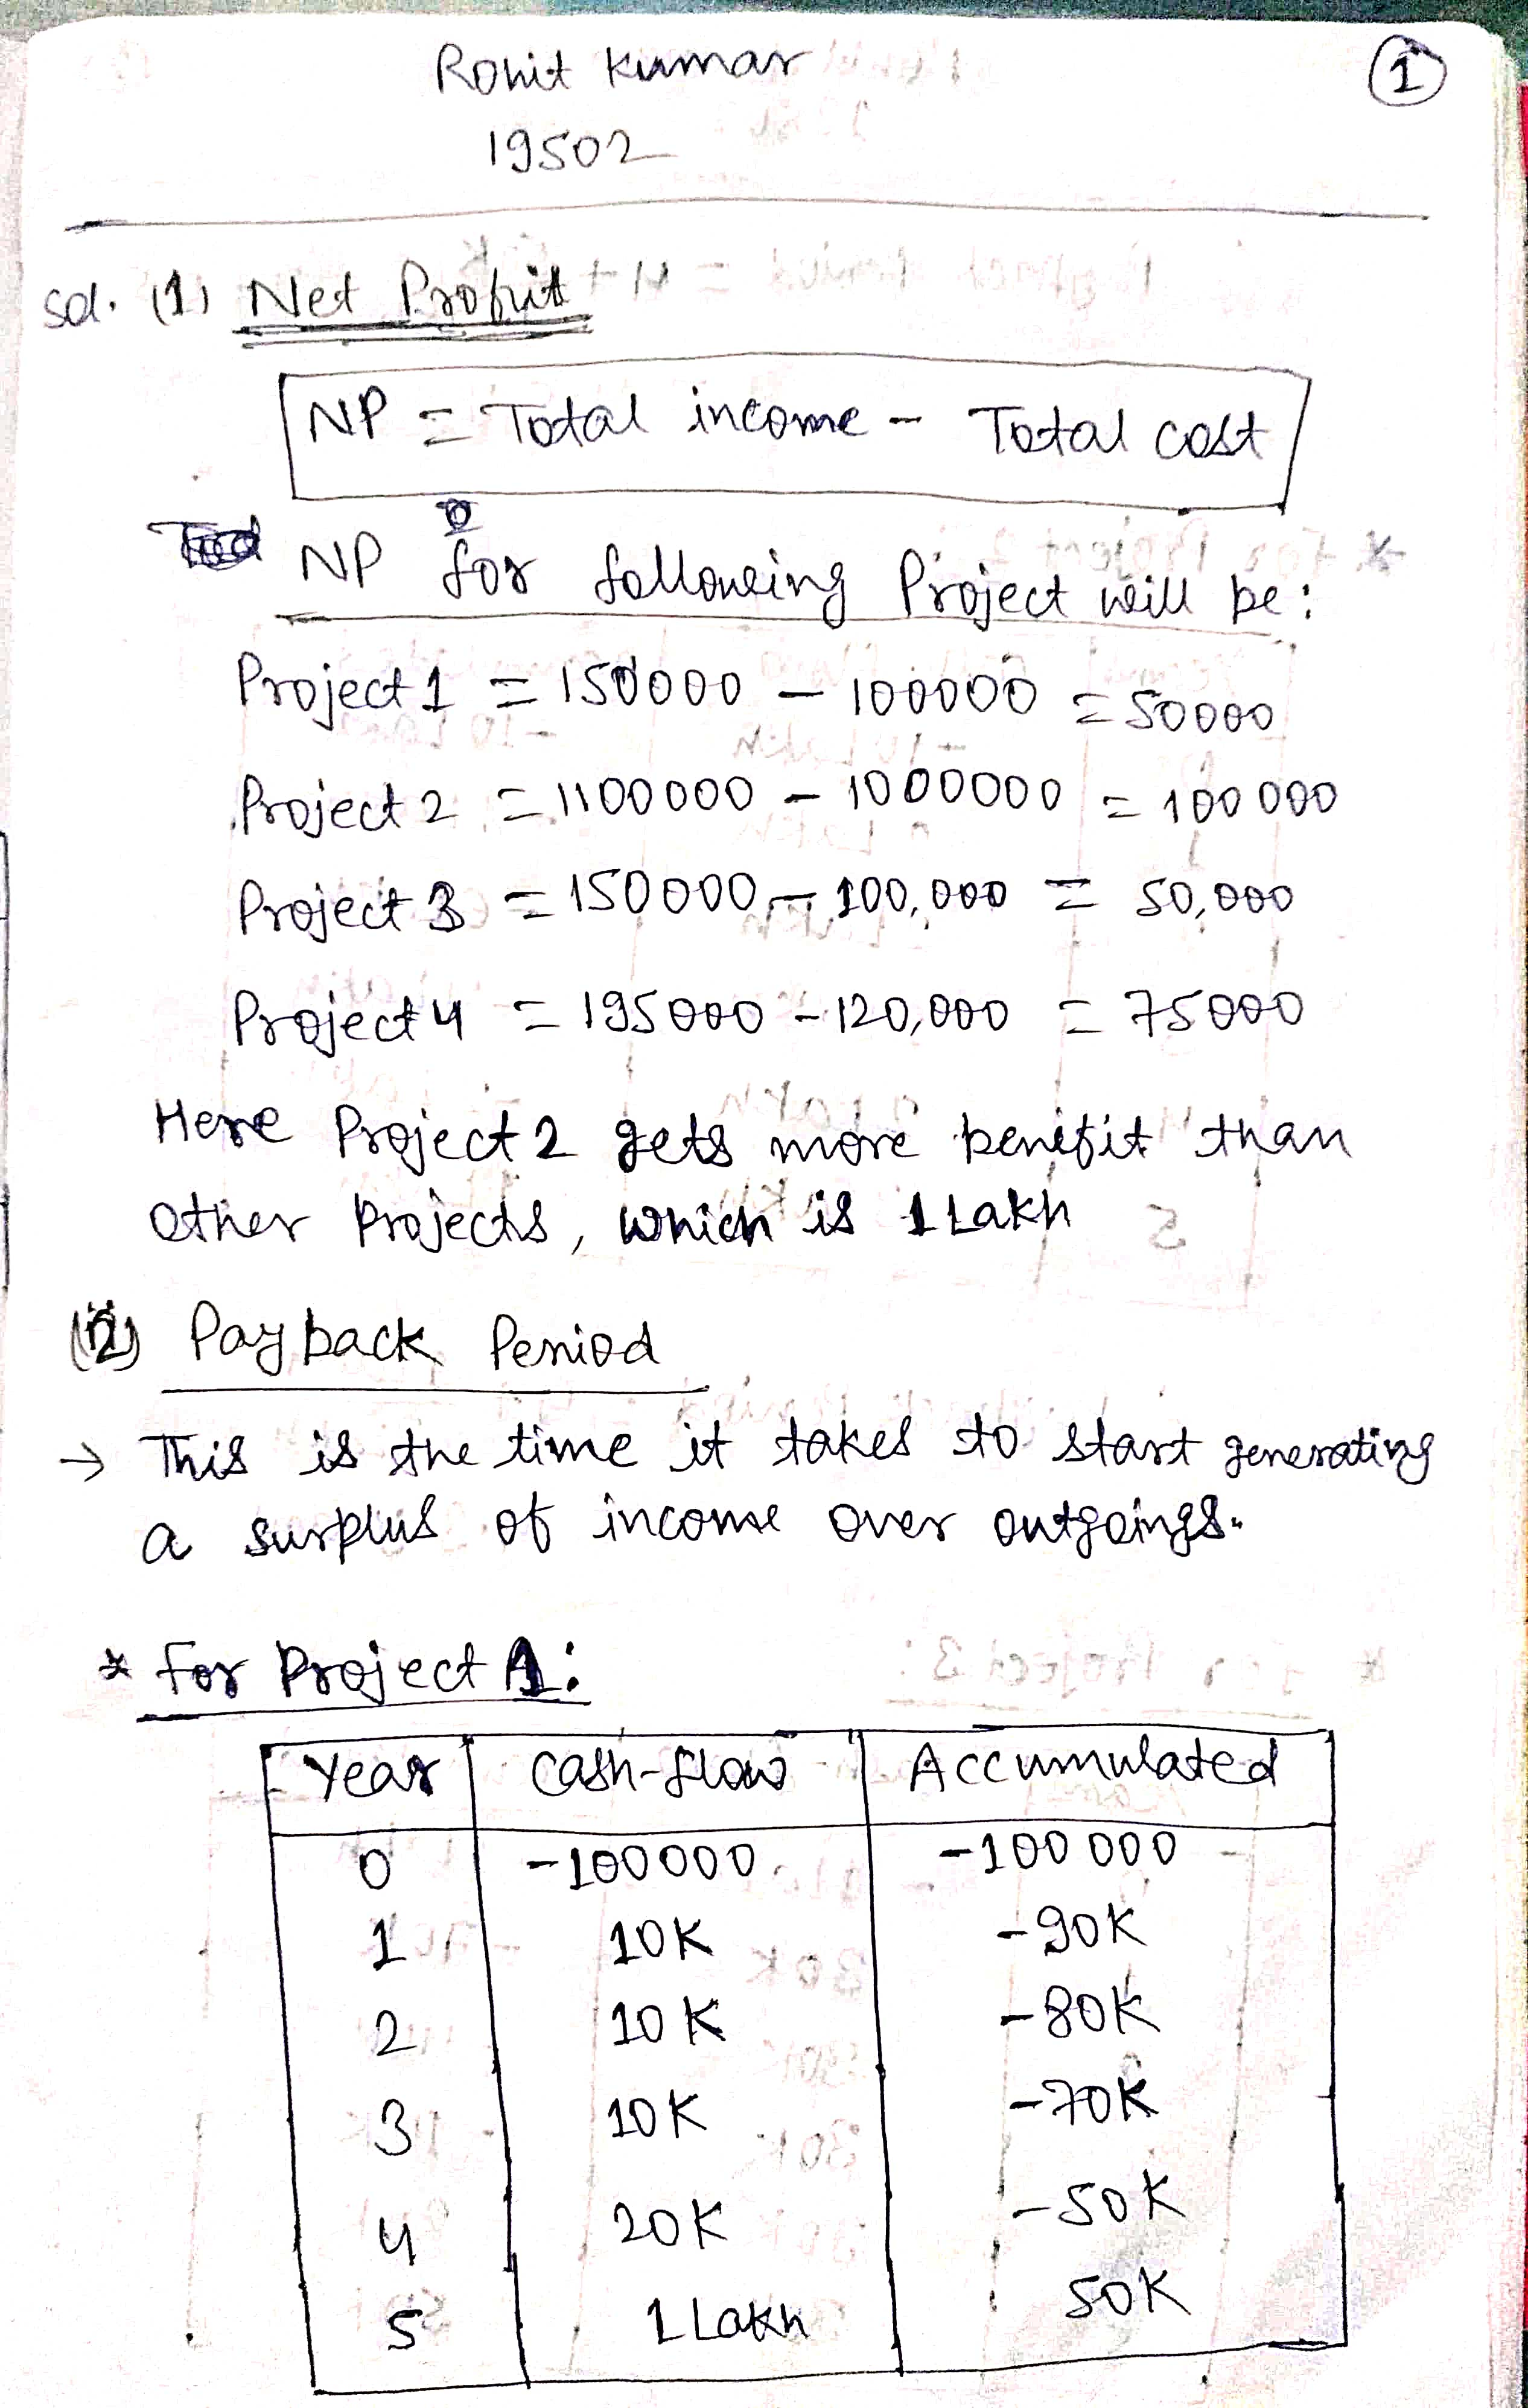 Rohit Kumar
1
19502
Sol. (1) Net Profit
NP = Total income - Total cost
NP for following Project will be:
Project 1 = 150000 - 100000 = 50000
Project 2 = 1100000 - 1000000 = 100000
Project 3 = 150000 - 100,000 = 50,000
Project 4 = 195000 - 120,000 = 75000
Here Project 2 gets more benifit than
other Projects, which is 1 Lakh
(2) Payback Period
→ This is the time it takes to start generating
a surplus of income over outgoings.
* For Project 1:
Year Cash-flow Accumulated
0 -100000 -100 000
1 10K -90K
2 10K -80K
3 10K -70K
4 20K -50K
5 1 Lakh 50K